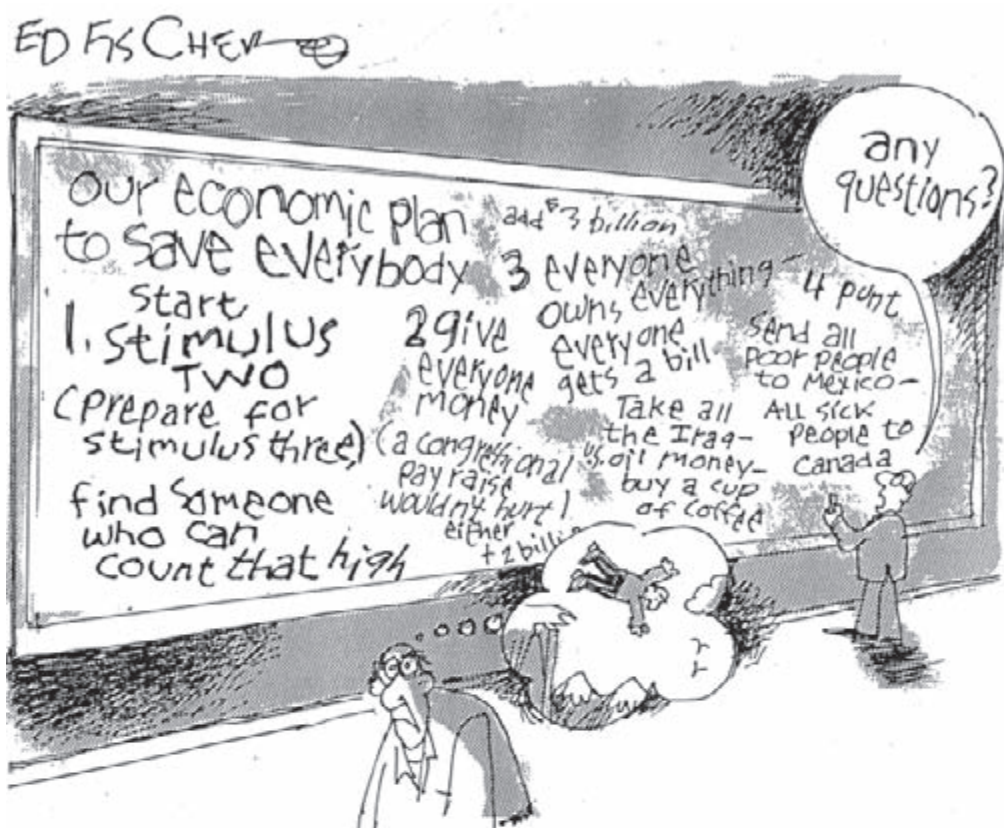 ED FISCHER
any
questions?
our economic plan
to save everybody
start
1. stimulus
TWO
(prepare for
stimulus three)
find someone
who can
count that high
2 give
everyone
money
(a congressional
pay raise
wouldn't hurt
either
+2 billi
add $3 billion
3 everyone
owns everything-
everyone
gets a bill
Take all
the Iraq-
U.S. oil money-
buy a cup
of coffee
4 punt
send all
poor people
to Mexico-
All sick
people to
Canada